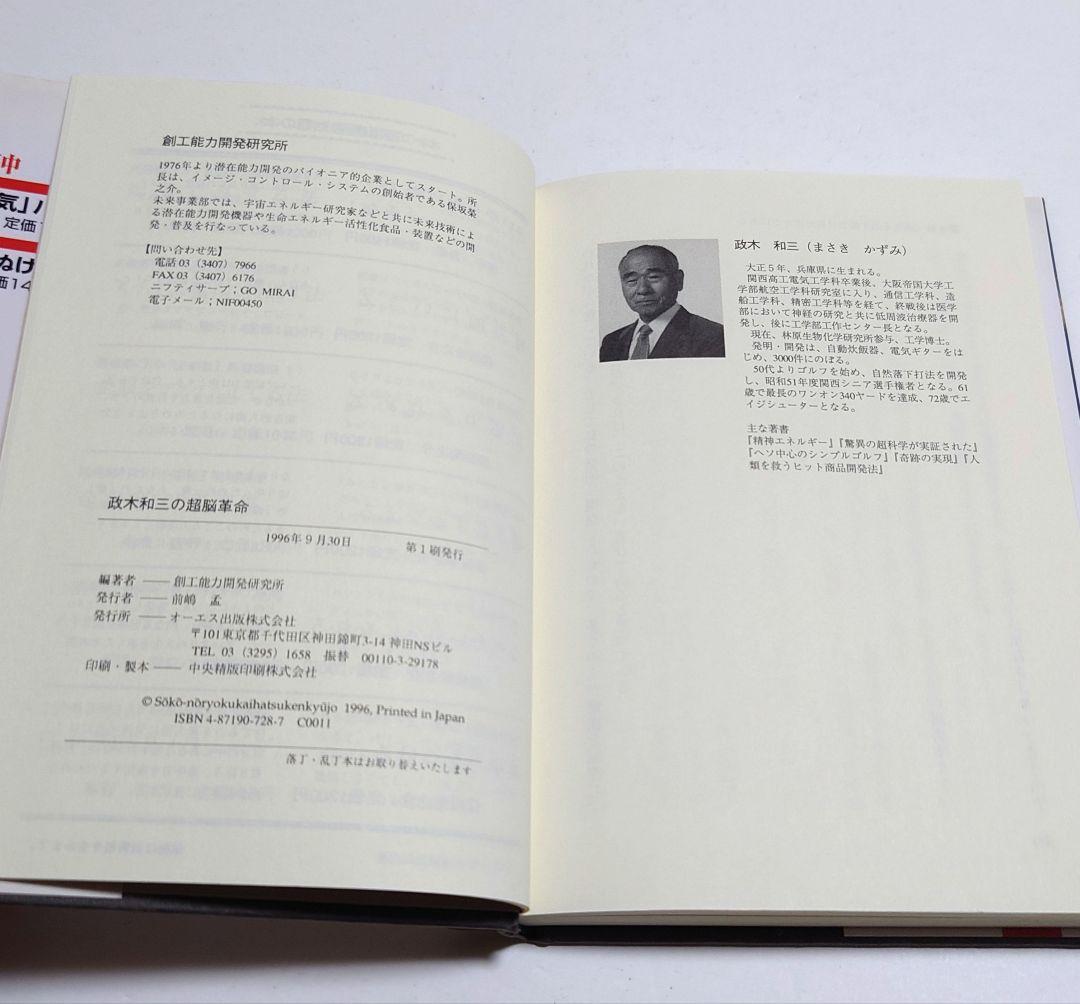 中
気」
定価
ぬけ
価14
創工能力開発研究所
1976年より潜在能力開発のパイオニア的企業としてスタート。所
長は、イメージ・コントロール・システムの創始者である保坂榮
之介。
未来事業部では、宇宙エネルギー研究家などと共に未来技術によ
る潜在能力開発機器や生命エネルギー活性化食品・装置などの開
発・普及を行なっている。
【問い合わせ先】
電話 03（3407）7966
FAX 03（3407）6176
ニフティサーブ；GO MIRAI
電子メール；NIF00450
政木和三の超脳革命
1996年9月30日 第1刷発行
編著者 —— 創工能力開発研究所
発行者 —— 前嶋 孟
発行所 —— オーエス出版株式会社
〒101東京都千代田区神田錦町3-14 神田NSビル
TEL 03（3295）1658 振替 00110-3-29178
印刷・製本 —— 中央精版印刷株式会社
© Sōkō-nōryokukaihatsukenkyūjo 1996, Printed in Japan
ISBN 4-87190-728-7 C0011
落丁・乱丁本はお取り替えいたします
政木 和三（まさき かずみ）
大正5年、兵庫県に生まれる。
関西高工電気工学科卒業後、大阪帝国大学工
学部航空工学科研究室に入り、通信工学科、造
船工学科、精密工学科等を経て、終戦後は医学
部において神経の研究と共に低周波治療器を開
発し、後に工学部工作センター長となる。
現在、林原生物化学研究所参与、工学博士。
発明・開発は、自動炊飯器、電気ギターをは
じめ、3000件にのぼる。
50代よりゴルフを始め、自然落下打法を開発
し、昭和51年度関西シニア選手権者となる。61
歳で最長のワンオン340ヤードを達成、72歳でエ
イジシューターとなる。
主な著書
『精神エネルギー』『驚異の超科学が実証された』
『ヘソ中心のシンプルゴルフ』『奇跡の実現』『人
類を救うヒット商品開発法』